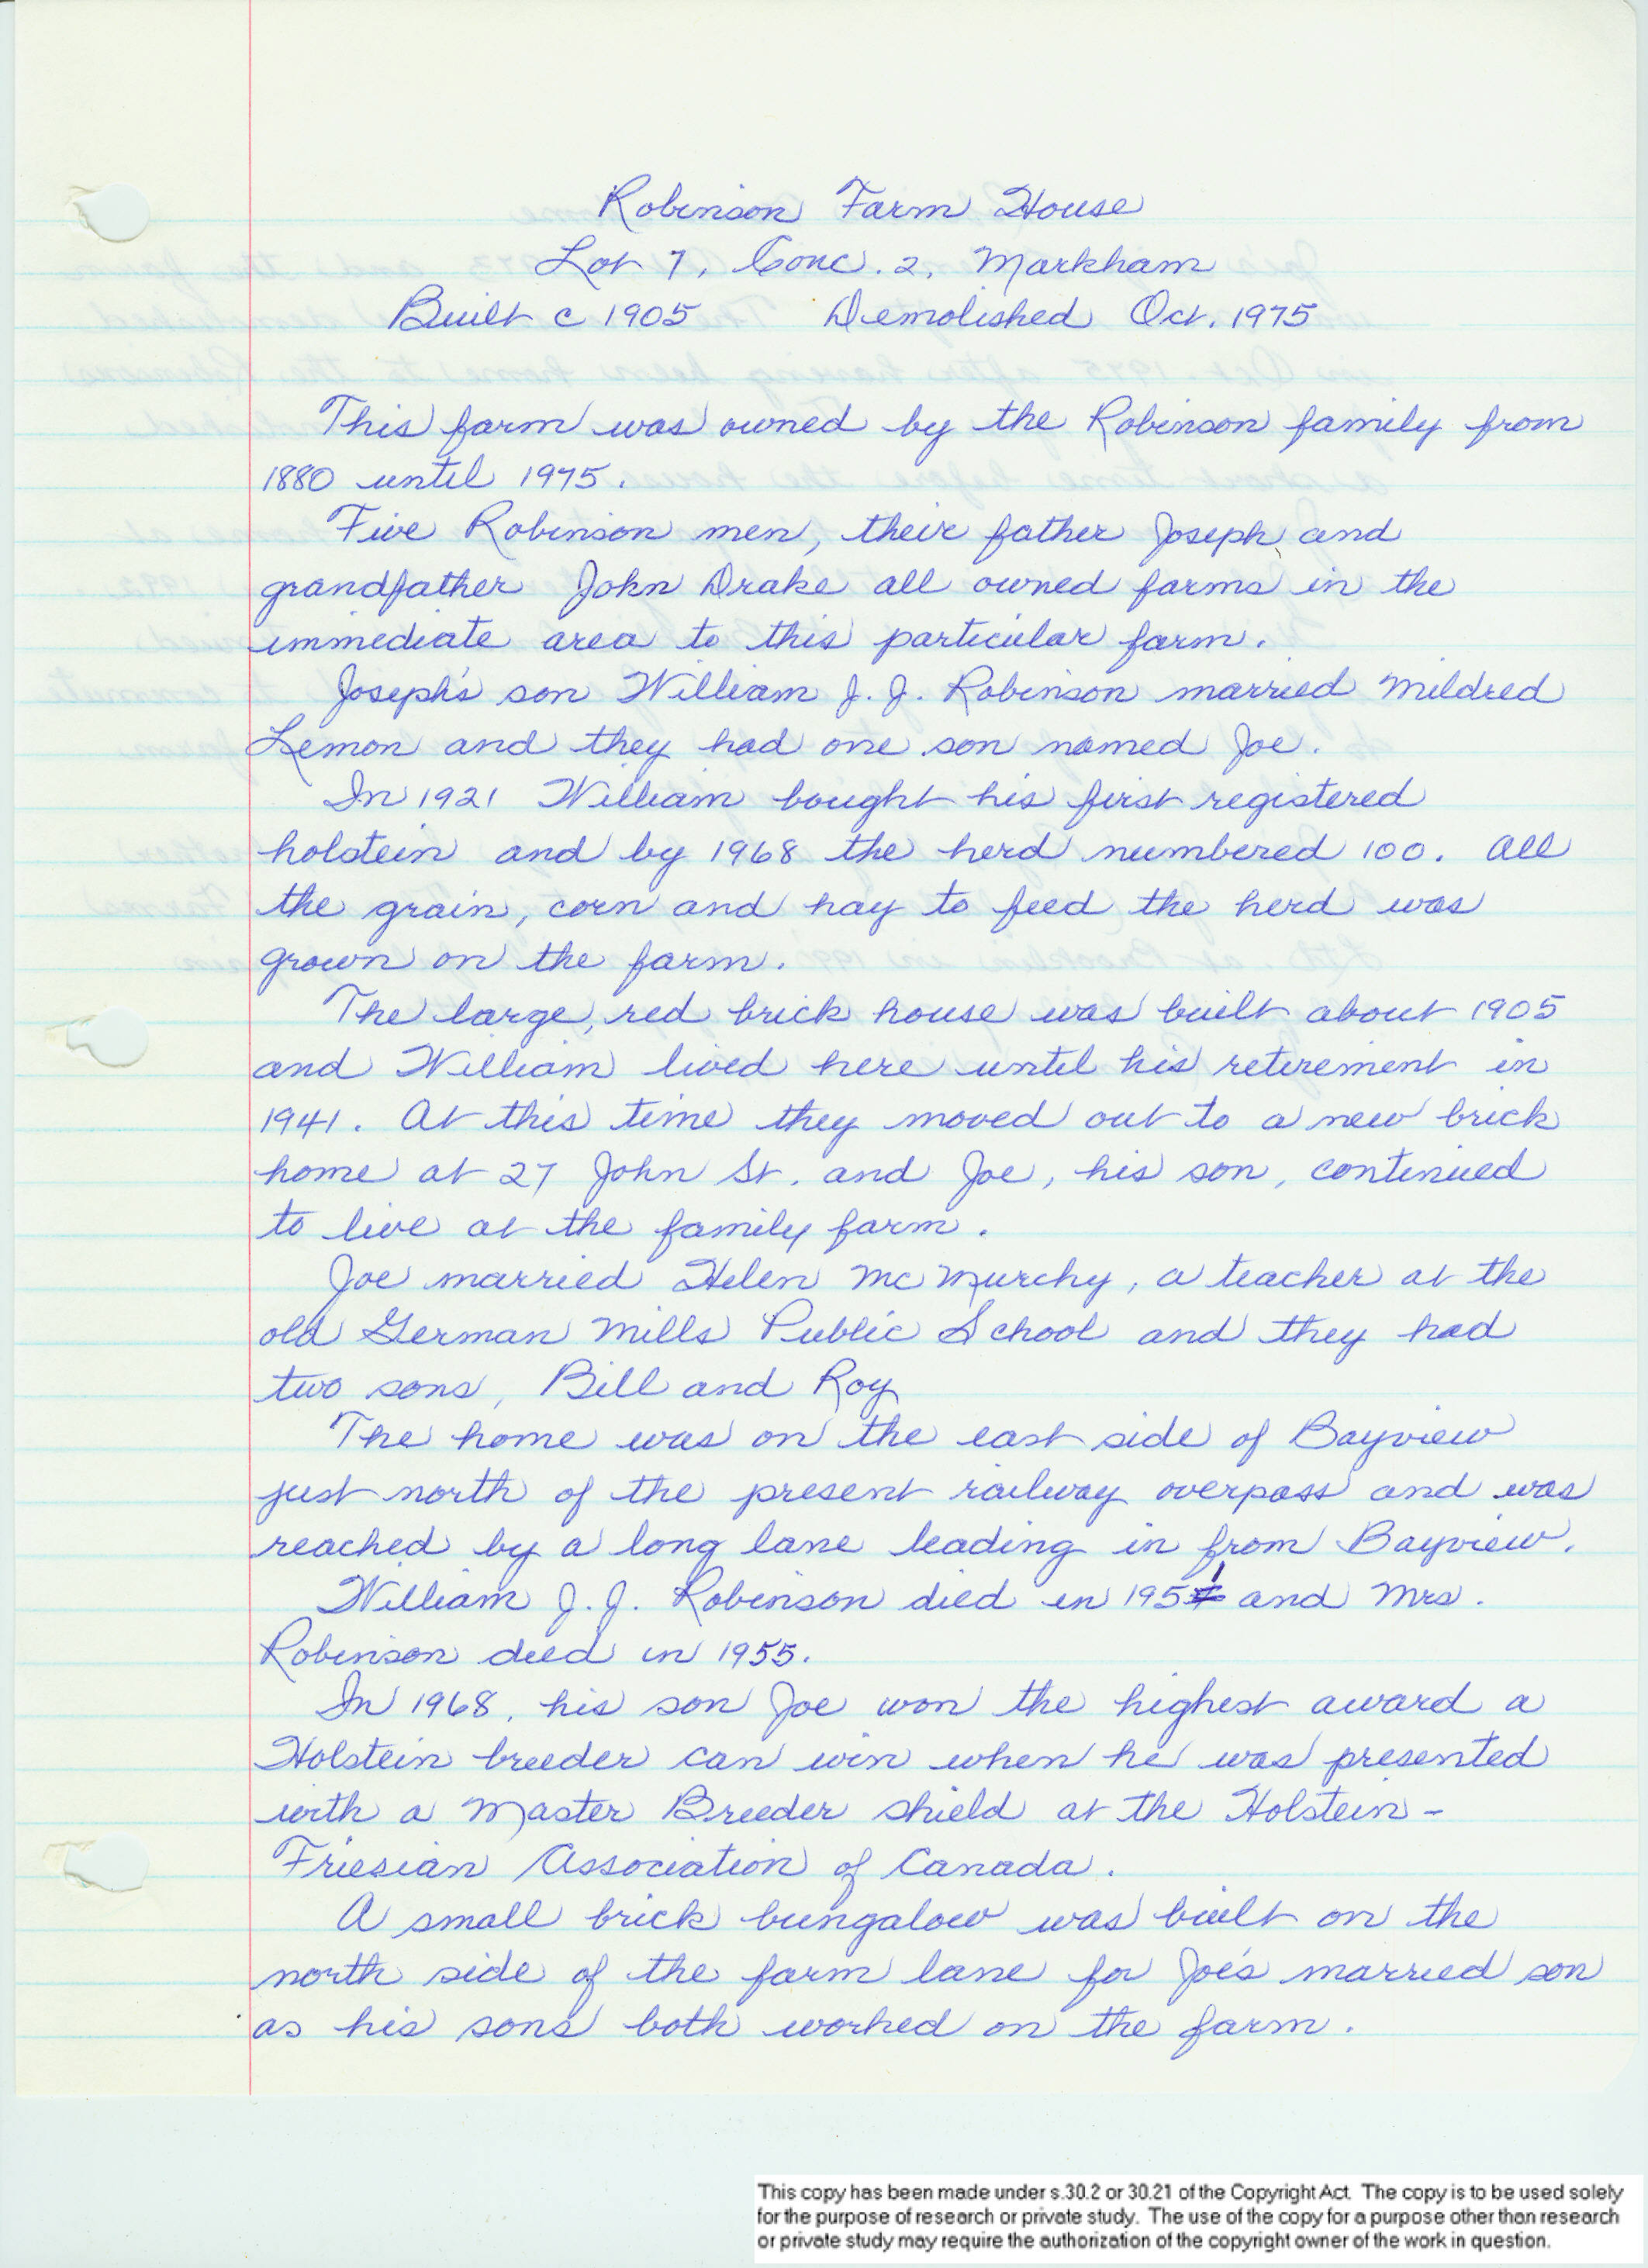 Robinson Farm House
Lot 7, Conc. 2, Markham
Built c 1905 Demolished Oct. 1975
This farm was owned by the Robinson family from
1880 until 1975.
Five Robinson men, their father Joseph and
grandfather John Drake all owned farms in the
immediate area to this particular farm.
Joseph's son William J. J. Robinson married Mildred
Lemon and they had one son named Joe.
In 1921 William bought his first registered
holstein and by 1968 the herd numbered 100. All
the grain, corn and hay to feed the herd was
grown on the farm.
The large, red brick house was built about 1905
and William lived here until his retirement in
1941. At this time they moved out to a new brick
home at 27 John St. and Joe, his son, continued
to live at the family farm.
Joe married Helen McMurchy, a teacher at the
old German Mills Public School and they had
two sons, Bill and Roy
The home was on the east side of Bayview
just north of the present railway overpass and was
reached by a long lane leading in from Bayview.
William J. J. Robinson died in 1951 and Mrs.
Robinson died in 1955.
In 1968, his son Joe won the highest award a
Holstein breeder can win when he was presented
with a Master Breeder shield at the Holstein-
Friesian Association of Canada.
A small brick bungalow was built on the
north side of the farm lane for Joe's married son
as his sons both worked on the farm.
This copy has been made under s.30.2 or 30.21 of the Copyright Act. The copy is to be used solely
for the purpose of research or private study. The use of the copy for a purpose other than research
or private study may require the authorization of the copyright owner of the work in question.